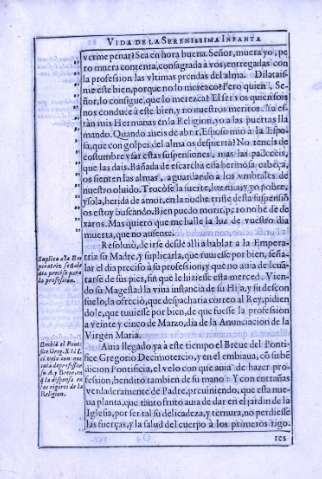 VIDA DE LA SERENISSIMA INFANTA
verme penar? Sea en hora buena. Señor, muera yo, pe-
ro muera contenta, consagrada à vos, entregadas con
la profession las vltimas prendas del alma. Dilatais-
me este bien, porque no lo merezco? Pero quien, Se-
ñor, lo consigue, que lo merezca? El ser vos quien sois
nos conduce à este bien, y no nuestros meritos. Ya es-
tàn mis Hermanas en la Religion, yo a las puertas lla
mando. Quando aueis de abrir, Esposo mio à la Espo-
sa, que con golpes del alma os despierta? No teneis de
costumbre vsar estas suspensiones, mas las padeceis,
que las dais. Bañada de escarcha essa hermosa cabeça,
os sienten las almas, aguardando à los vmbrales de
nuestro oluido. Trocòse la suerte,
y sola, herida de amor, en la noche triste desta suspensió
os estoy buscando. Bien puedo morir, pero no he de de
xaros. Mas quiero que me halle la luz de vuesso dia
muerta, que no ausente.
Resoluiò, de irse desde alli à hablar a la Empera-
triz su Madre, y suplicarla, que tuuiesse por bien, seña-
lar el dia preciso à su profession, y que no auia de leuan-
tarse de sus pies, sin que le hiziesse esta merced. Vien-
do su Magestad la viua instancia de su Hija, y su descon
suelo, la ofreciò, que despacharia correo al Rey, pidien
dole, que tuuiesse por bien, de que fuesse la profession
a veinte y cinco de Março, dia de la Anunciacion de la
Virgen Maria.
Suplica a la Em
peratriz, señale
dia preciso para
la profession.
Auia llegado ya à este tiempo el Breue del Ponti-
fice Gregorio Decimotercio, y en el embiaua, cō subē
dicion Pontificia, el velo con que auia de hazer pro-
fession, bendito tambien de su mano. Y con entrañas
verdaderamente de Padre, preuiniendo, que esta nue-
ua planta, que tanto fruto auia de dar en el jardin de la
Iglesia, por ser tal su delicadeza, y ternura, no perdiesse
las fuerças, y la salud del cuerpo à los primeros rigo-
Embiò el Ponti
fice Greg. XIII.
el velo con que
auia de professar
S. A. y Breue, en
q̃ la dispensa en
los rigores de la
Religion.
res